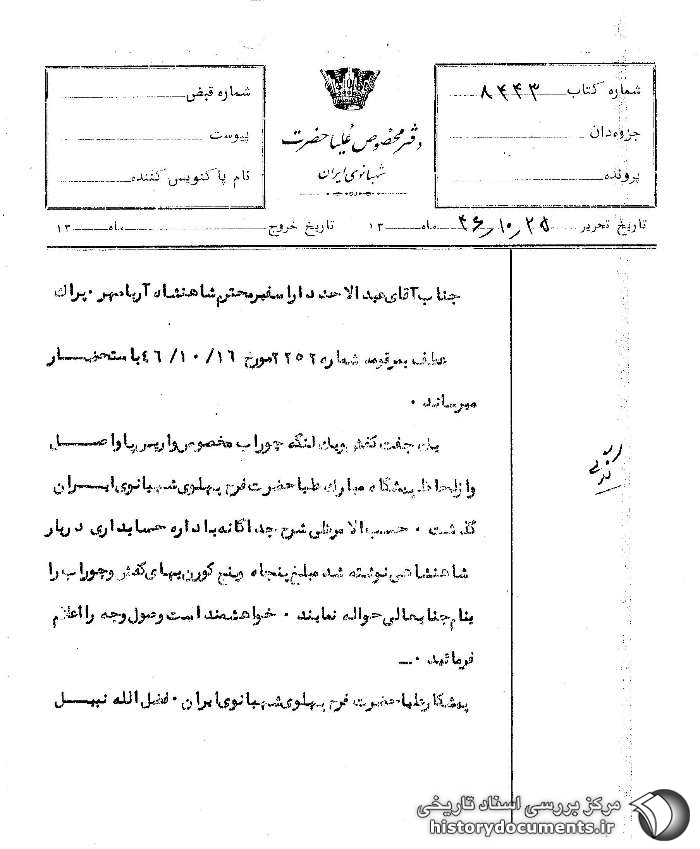 شماره کتاب ۸۴۴۳
جزوه‌دان
پرونده
دفتر مخصوص علیاحضرت
شهبانوی ایران
شماره قبض
پیوست
نام پاکنویس کننده
تاریخ تحریر ۴۶/۱۰/۲۵ ماه ۱۳ تاریخ خروج ماه ۱۳
جناب آقای عبدالاحد دارا سفیر محترم شاهنشاه آریامهر ۰ پراگ
عطف بمرقومه شماره ۲۲۵۲ مورخ ۴۶/۱۰/۱۶ باستحضار
میرساند ۰
یک جفت کفش ویک لنگه چوراب مخصوص واریس پا واصل
واز لحاظ پیشگاه مبارک علیاحضرت فرح پهلوی شهبانوی ایران
گذشت ۰ حسب الامر طی شرح جداگانه باداره حسابداری دربار
شاهنشاهی نوشته شد مبلغ پنجاه وپنج کورن بهای کفش وچوراب را
بنام جنابعالی حواله نمایند ۰ خواهشمند است وصول وجه را اعلام
فرمائید ۰ــ
پیشکار علیاحضرت فرح پهلوی شهبانوی ایران ۰ فضل الله نبیل
مرکز بررسی اسناد تاریخی
historydocuments.ir